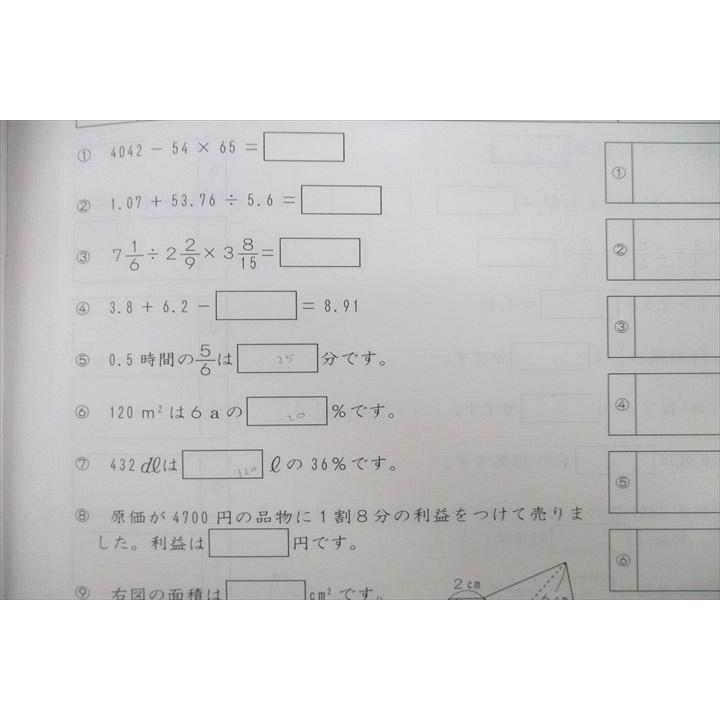 ① 4042 − 54 × 65 =
② 1.07 + 53.76 ÷ 5.6 =
③ 7 1/6 ÷ 2 2/9 × 3 8/15 =
④ 3.8 + 6.2 − = 8.91
⑤ 0.5 時間の 5/6 は 25 分です。
⑥ 120 m² は 6 a の 20 %です。
⑦ 432 dℓは 120 ℓの 36%です。
⑧ 原価が 4700 円の品物に 1 割 8 分の利益をつけて売りま
した。利益は 円です。
⑨ 右図の面積は cm² です。
2 cm
6 cm
①
②
③
④
⑤
⑥